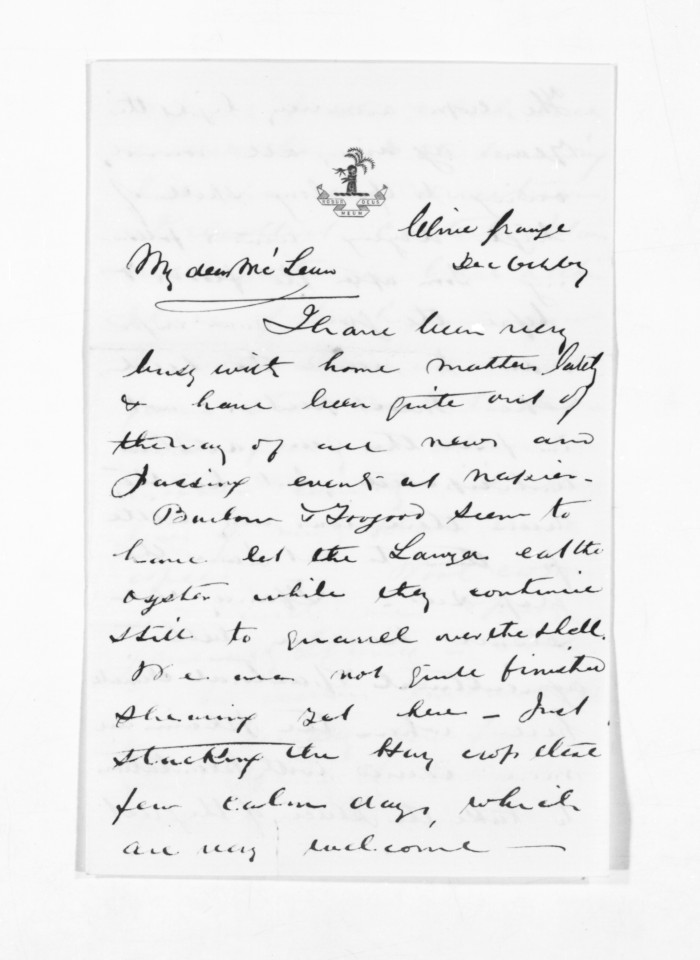 Olive Grange
Dec 6th 67
My dear McLean
I have been very
busy with home matters lately
& have been quite out of
the way of all news and
passing events at Napier -
Barlow & Toogood seem to
have let the Lawyers eat the
oyster while they continue
still to quarrel over the shell.
We are not quite finished
shearing yet here - Just
stacking the Hay crop these
few calm days, which
are very welcome -